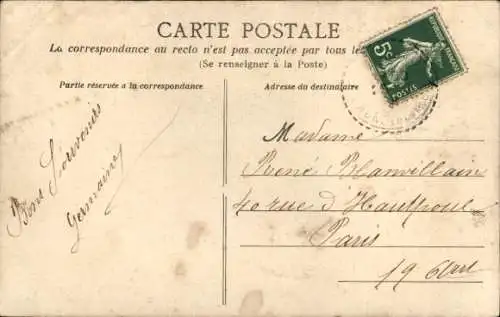 CARTE POSTALE
La correspondance au recto n'est pas acceptée par tous les
(Se renseigner à la Poste)
Partie réservée à la correspondance
Adresse du destinataire
5c
POSTES
Bons Souvenirs
Germaine
Madame
René Blanvillain
40 rue d'Hautpoul
Paris
19